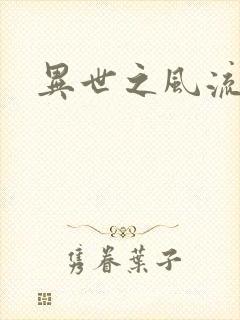 異世之風流
雋眷葉子